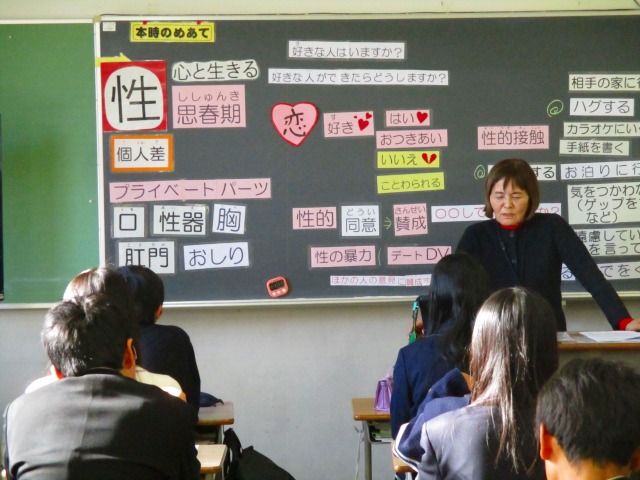 本時のめあて
性
心と生きる
ししゅんき
思春期
個人差
プライベートパーツ
口
性器
胸
肛門
おしり
好きな人はいますか?
好きな人ができたらどうしますか?
恋
好き
はい
おつきあい
いいえ
ことわられる
性的
どうい
同意
さんせい
賛成
性の暴力
デートDV
性的接触
相手の家に行
ハグする
カラオケにい
手紙を書く
する
お泊りに行
気をつかわ
(ゲップを
など)